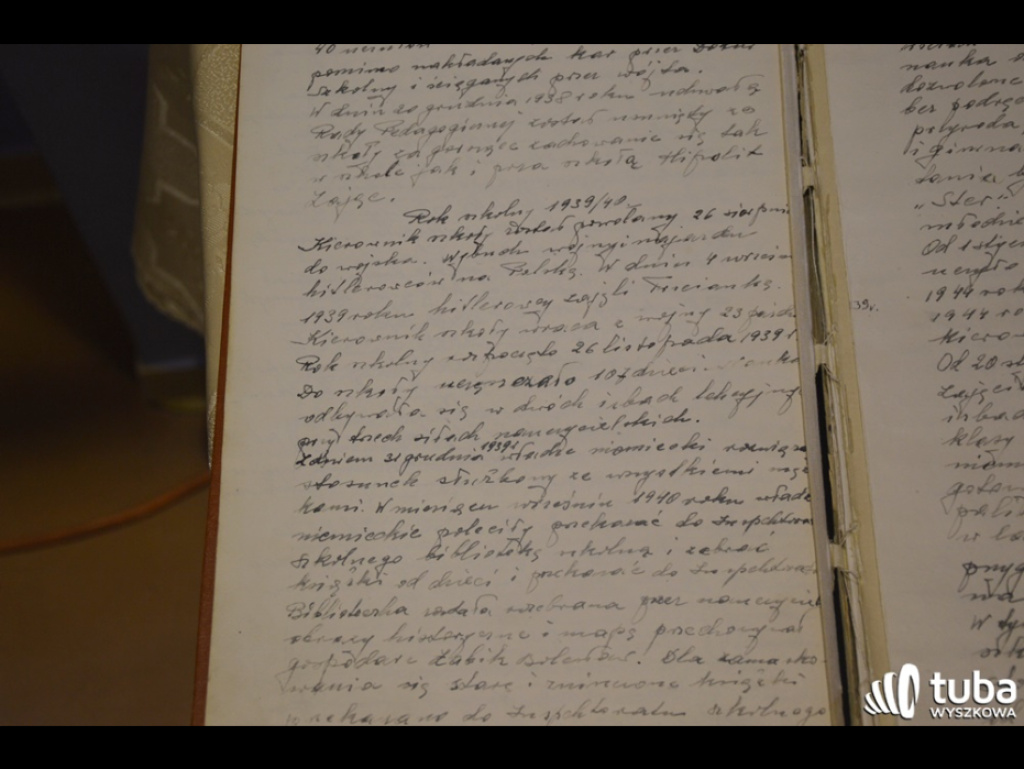 40 uczniów
pomimo nakładanych kar przez Dozór
Szkolny i ściąganych przez wójta.
W dniu 20 grudnia 1938 roku uchwałą
Rady Pedagogicznej został usunięty ze
szkoły za gorszące zachowanie się tak
w szkole jak i poza szkołą Hipolit
Zając.
Rok szkolny 1939/40.
Kierownik szkoły został powołany 26 sierpnia
do wojska. Wybuch wojny i najazdu
hitlerowców na Polskę. W dniu 4 wrześn
1939 roku hitlerowcy zajęli
Kierownik szkoły wraca z wojny 23 paźdz
Rok szkolny rozpoczęto 26 listopada 1939 r
Do szkoły uczęszczało 107 dzieci
odbywała się w dwóch izbach lekcyjny
przy trzech siłach nauczycielskich.
Z dniem 31 grudnia 1939 r władze niemieckie rozwiąza
stosunek służbowy ze wszystkiemi
kami. W miesiącu wrześniu 1940 roku władze
niemieckie poleciły przekazać do Inspektora
Szkolnego bibliotekę szkolną i zebrać
książki od dzieci i przekazać do Inspektora
Biblioteczka została rozebrana przez nauczyciel
obrazy historyczne i mapę przechowywał
gospodarz Żabik Bolesław. Dla zamasko-
wania się stare i zniszczone książki
przekazano do Inspektoratu szkolnego
nauka
dozwolone
bez podrę
przyroda
i gimna
"Ster"
młodzie
Od 1 stycz
uczyło
1944 rok
1944 r
kierow
Od 20 st
zajęci
izbac
klasy
w la
przyg
W ty
39r.
tuba
WYSZKOWA